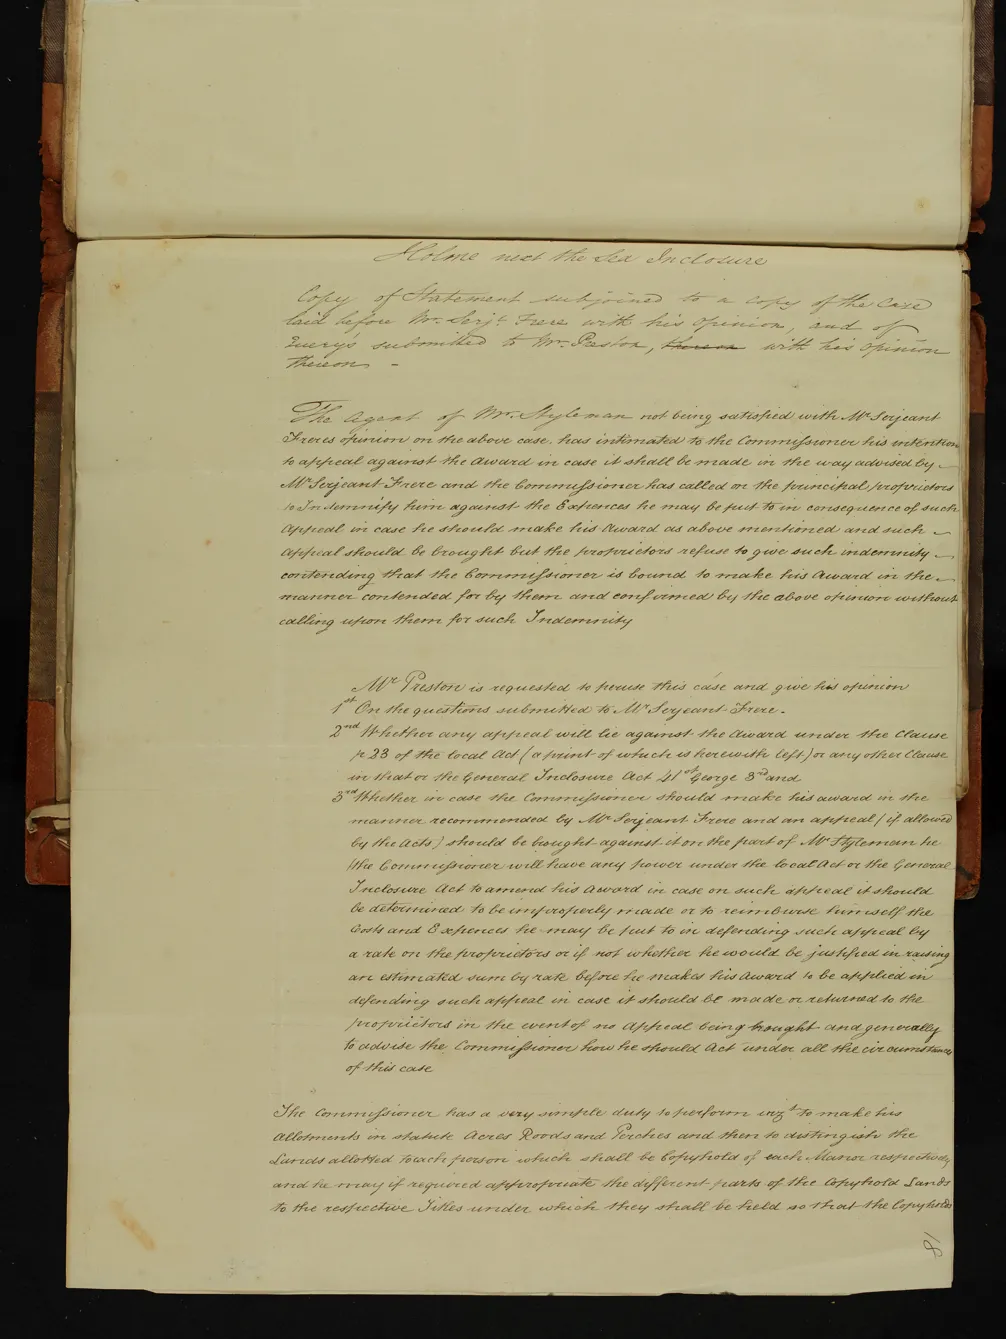 Holme next the Sea Inclosure
Copy of Statement subjoined to a copy of the Case
laid before Mr. Serjt. Frere with his Opinion, and of
Query's submitted to Mr. Preston, thereon with his Opinion
thereon -
The Agent of Mr. Styleman not being satisfied with Mr Serjeant
Freres opinion on the above case. has intimated to the Commissioner his intention
to appeal against the Award in case it shall be made in the way advised by
Mr Serjeant Frere and the Commissioner has called on the principal proprietors
to Indemnify him against the Expences he may be put to in consequence of such
Appeal in case he should make his Award as above mentioned and such
Appeal should be brought but the proprietors refuse to give such indemnity
contending that the Commissioner is bound to make his Award in the
manner contended for by them and confirmed by the above opinion without
calling upon them for such Indemnity
Mr Preston is requested to peruse this case and give his opinion
1st On the questions submitted to Mr Serjeant Frere.
2nd Whether any appeal will lie against the Award under the Clause
p 23 of the local Act (a print of which is herewith left) or any other Clause
in that or the General Inclosure Act 41st George 3rd and
3rd Whether in case the Commissioner should make his award in the
manner recommended by Mr Serjeant Frere and an appeal (if allowed
by the Acts) should be brought against it on the part of Mr Styleman he
(the Commissioner will have any power under the local Act or the General
Inclosure Act to amend his Award in case on such appeal it should
be determined to be improperly made or to reimburse himself the
Costs and Expences he may be put to in defending such appeal by
a rate on the proprietors or if not whether he would be justified in raising
an estimated sum by rate before he makes his Award to be applied in
defending such appeal in case it should be made or returned to the
proprietors in the event of no Appeal being brought and generally
to advise the Commissioner how he should Act under all the circumstances
of this case
The Commissioner has a very simple duty to perform vizt to make his
Allotments in statute Acres Roods and Perches and then to distinguish the
Lands allotted to each person which shall be Copyhold of each Manor respectively
and he may if required appropriate the different parts of the Copyhold Lands
to the respective Titles under which they shall be held so that the Copyholds